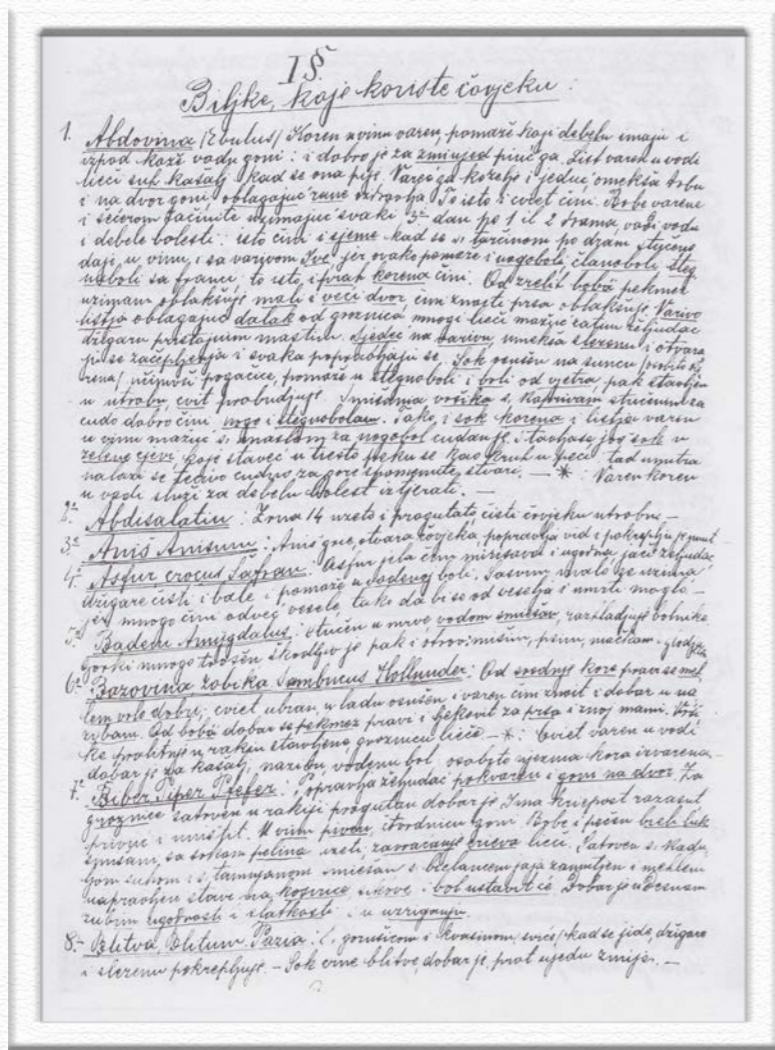 I §.
Biljke, koje koriste čovjeku:
1. Abdovina /Ebulus/ Koren u vinu varen, pomaže koji debelu imaju i
izpod kože vodu goni: i dobro je za zmiujed piuć ga. List varen u vodi
lieči suh kašalj kad se ona pije. Vareć ga kozelje i jeduć, omekša trbu
i na dvor goni, oblagajuć rane ozdravlja To isto i cviet čini. Bobe varene
i sećerom začinite uzimajuć svaki 3ći dan po 1 il 2 drama, vadi vodu
i debele bolesti: isto čini i sjeme kad se s tarčinom po dram stučeno
daji, u vinu, i sa varivom Ive, jer ovako pomaže i nogoboli članoboli steg
noboli sa francu to isto i prah korena čini. Od zrelih bobâ pekmez
uziman oblakšuje mali i veći dvor, čini znoiti prsa oblakšuje. Varivo
listja oblagajuć dalak od groznice mnogi lieči mažuć zatim željudac
džigaru pristojnim mastim. Sjedeć na varivu, umekša slezenu i otvara
začepljenja i svaka popravljaju se. Sok osušen na suncu
načinivši pogačice, pomaže u stegnoboli i boli od vjetra, pak stavljen
u utrobu cvit probudjuje. s koprivam stučenim za
čudo dobro čini nogo i stegnobolam. Tako i sok korena i listja varen
u vinu mažuć s maslom za nogobol čudan je, i tavjase joj sok u
zelene cjevi koje staveć u tiesto peku se kao kruh u peći tad unutra
nalazi se liečivo čudno za gore spomenute stvari. — * : Varen koren
u vodi služi za debelu bolest iztjerati. —
2. Abdisalatin: Zrna 14 uzeto i progutato čisti čovjeku utrobu. —
3. Aniš Anisum: Aniš grie, otvara čovjeka, popravlja vid i pokrepljuje
4. Asfur crocus Safran: Asfur jila čini mirisava i ugodna, jači željudac
džigare čisti i bale i pomaže u vodenoj boli, Sasvim malo se uzima
jer mnogo čini odveć vesele, tako da bi se od veselja i umrti moglo. —
5. Badem Amygdalus: stučen u mrve, vodom smiešan, razhladjuje bolnike,
Gorki mnogo trošen, škodljiv je pak i otrov: mišim, psim, mačkam.
6. Bazovina zobika Sambucus Hollunder: Od srednje kore pravi se meh
lem vrlo dobri; cviet ubran, u ladu osušen i varen čini znoit i dobar u na
zebam. Od bobâ dobar se pekmez pravi i ljekovit za prsa i znoj mami. Vrši
ke prolitnje u rakiu stavljene groznicu lieče. — * : Cviet varen u vodi
dobar je za kašalj, nazibu, vodenu bol, osobyto njezina kora izvarena. —
7. Biber Piper Pfefer: Popravlja željudac pokvaren i goni na dvor. Za
groznice satoren u rakiji progutan dobar je. Ima kriepost razasut
privuć i umišit. U vinu pivan, itvrdnicu goni. Bobe i pečen bieli luk
smišam, sa sokom pelina uzeti, zavraćanje crieva lieči. Satoren s. kadu
ljom suhom i s. tamnjanom smiešan s. bielancem jaja zamutjen i mehlem
napravljen stavi na kosirice, sikove i bol ustavit će. Dobar je u desnam
zubim ugodnosti i slatkosti i u uzriganju.
8. Blitva, Blitum, Pazia: S. gorušicom i kvasinom, kad se jide, džigare
i slezenu pokrepljuje. — Sok crne blitve, dobar je prot ujedu zmije. —